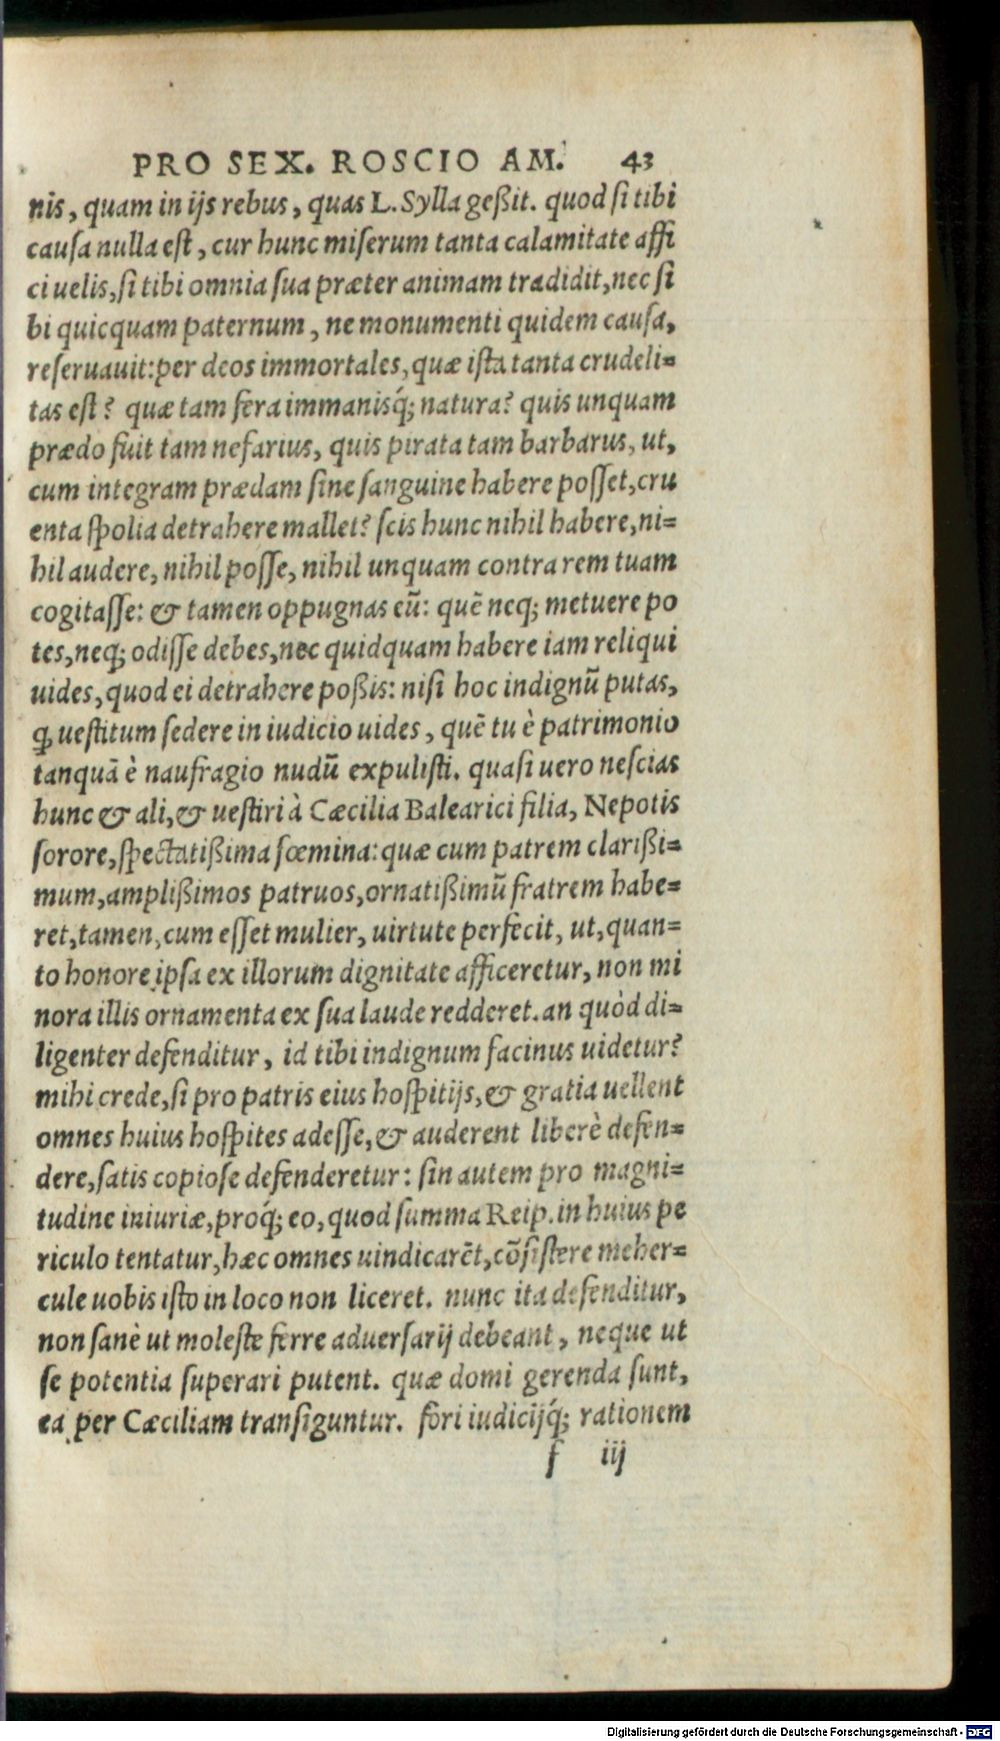 PRO SEX. ROSCIO AM. 43
nis, quam in ijs rebus, quas L. Sylla geßit. quod ſi tibi
cauſa nulla eſt, cur hunc miſerum tanta calamitate affi
ci uelis, ſi tibi omnia ſua præter animam tradidit, nec ſi
bi quicquam paternum, ne monumenti quidem cauſa,
reſeruauit: per deos immortales, quæ iſta tanta crudeli=
tas eſt? quæ tam fera immanisq́; natura? quis unquam
prædo fuit tam nefarius, quis pirata tam barbarus, ut,
cum integram prædam ſine ſanguine habere poſſet, cru
enta ſpolia detrahere mallet? ſcis hunc nihil habere, ni=
hil audere, nihil poſſe, nihil unquam contra rem tuam
cogitaſſe: & tamen oppugnas eū: quē neq; metuere po
tes, neq; odiſſe debes, nec quidquam habere iam reliqui
uides, quod ei detrahere poßis: niſi hoc indignū putas,
ꝙ ueſtitum ſedere in iudicio uides, quē tu è patrimonio
tanquā è naufragio nudū expuliſti. quaſi uero neſcias
hunc & ali, & ueſtiri à Cæcilia Balearici filia, Nepotis
ſorore, ſpectatißima fœmina: quæ cum patrem clarißi=
mum, amplißimos patruos, ornatißimū fratrem habe=
ret, tamen, cum eſſet mulier, uirtute perfecit, ut, quan=
to honore ipſa ex illorum dignitate afficeretur, non mi
nora illis ornamenta ex ſua laude redderet. an quòd di=
ligenter defenditur, id tibi indignum facinus uidetur?
mihi crede, ſi pro patris eius hoſpitijs, & gratia uellent
omnes huius hoſpites adeſſe, & auderent liberè defen=
dere, ſatis copioſe defenderetur: ſin autem pro magni=
tudine iniuriæ, proq́; eo, quod ſumma Reip. in huius pe
riculo tentatur, hæc omnes uindicarēt, cōſiſtere meher=
cule uobis iſto in loco non liceret. nunc ita defenditur,
non ſanè ut moleſte ferre aduerſarij debeant, neque ut
ſe potentia ſuperari putent. quæ domi gerenda ſunt,
ea per Cæciliam tranſiguntur. fori iudicijq́; rationem
f iij
Digitalisierung gefördert durch die Deutsche Forschungsgemeinschaft - DFG